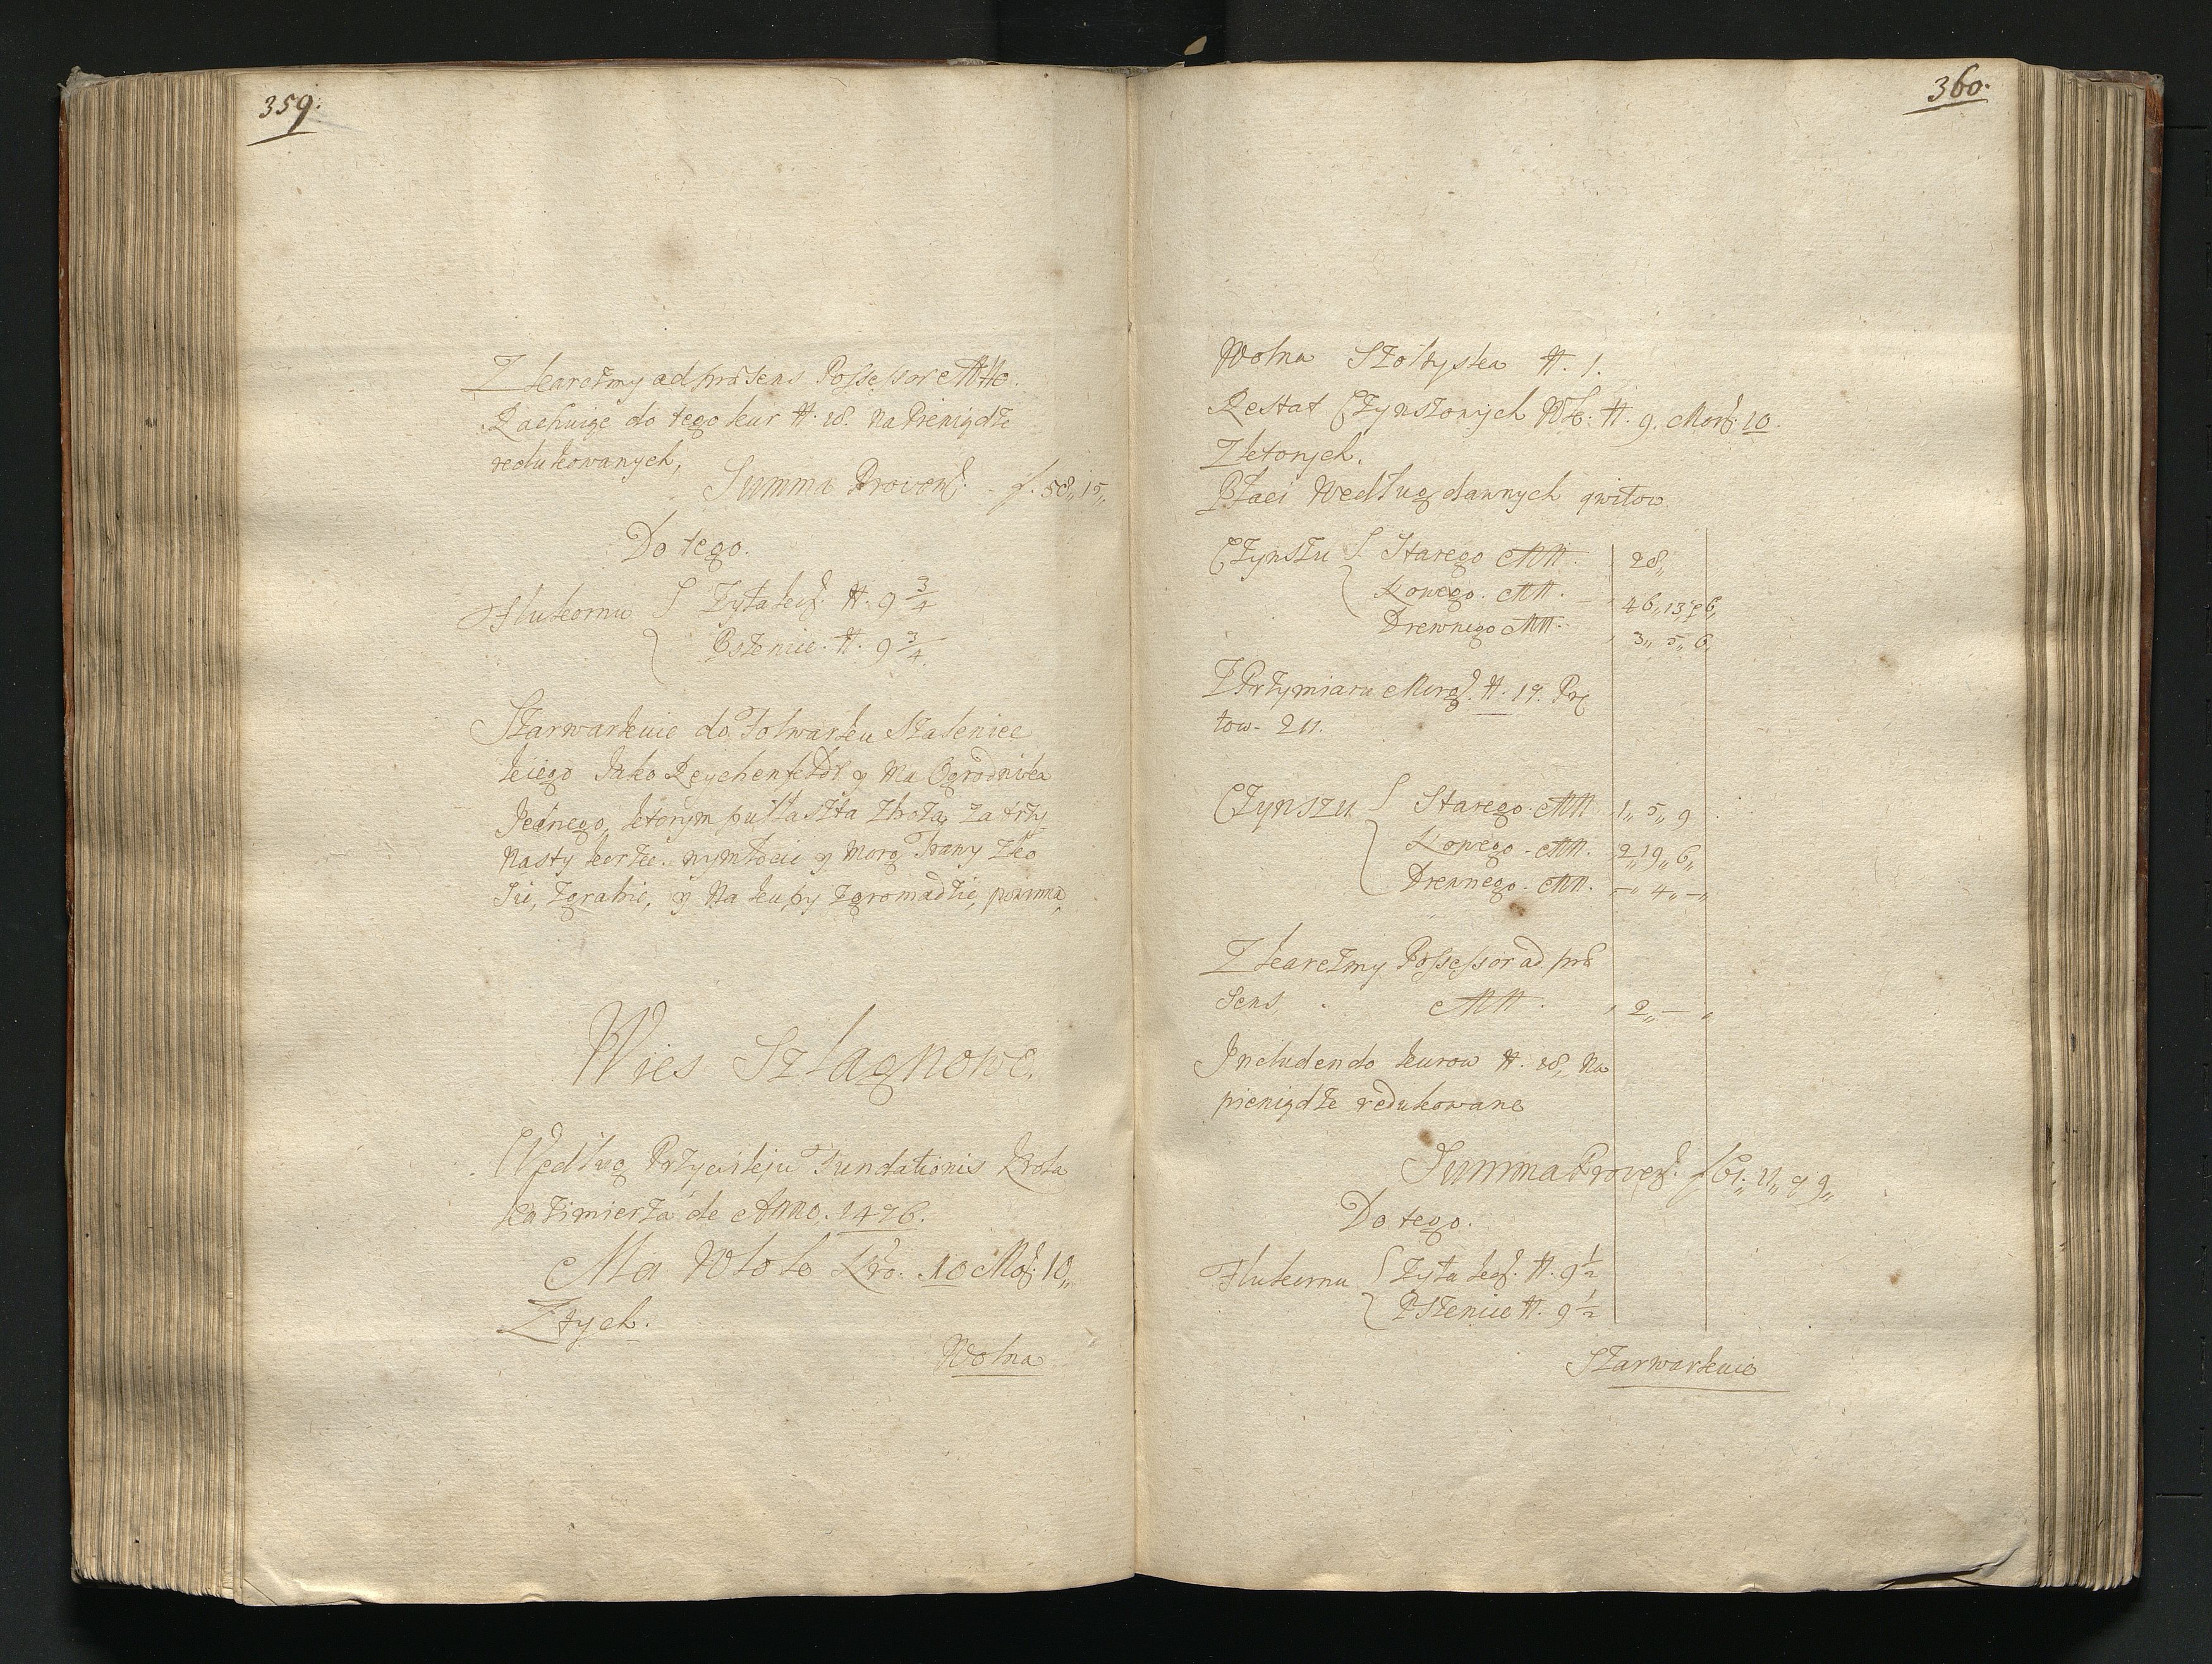 359.
Z karczmy ad præsens Possessor
Rachuige do tego kur # 18. na Pieniądze
redukowanych,
Summa Proven: f. 58„15„
Do tego.
Flukornu Zyta kor: #. 9 3/4
Pszenice #. 9 3/4
Szarwarkuie do Folwarku Staleniec
kiego Jako Reychenfeldt y Ma Ogrodnika
Jednego, ktorym puł Łaszta zboża, za trzy
nasty korzec. wymłocic y morg Trawy zko
sic, zgrabic, y na kupy zgromadzic, powinna,
Wies Szlagnowe.
Według Przywileju Fundationis Krola
Kazimierza de Anno. 1476.
Ma Włok Nro. 10 Mor: 10„
Z tych.
Wolna
360.
Wolna Szołtyska #. 1.
Restat Czynszowych Wł: #. 9. Mor: 10.
Z ktorych.
Płaci Według dawnych qwitow
Czynszu Starego 28„
Nowego 46„13„ 6„
Drewnego 3„ 5„ 6
Z Przymiaru Morg: #. 19. Prę
tow. 211.
Czynszu Starego 1„ 5„ 9
Nowego 2„19„ 6„
Drewnego -„ 4„ -„
Z karczmy Possessor ad præ
sens, 2„ -
Includendo kurow #. 18, na
pieniądze redukowane
Summa Proven: f 61„ 11„ 9„
Do tego.
Flukornu Zyta kor: #. 9 1/2
Pszenice #. 9 1/2
Szarwarkuie